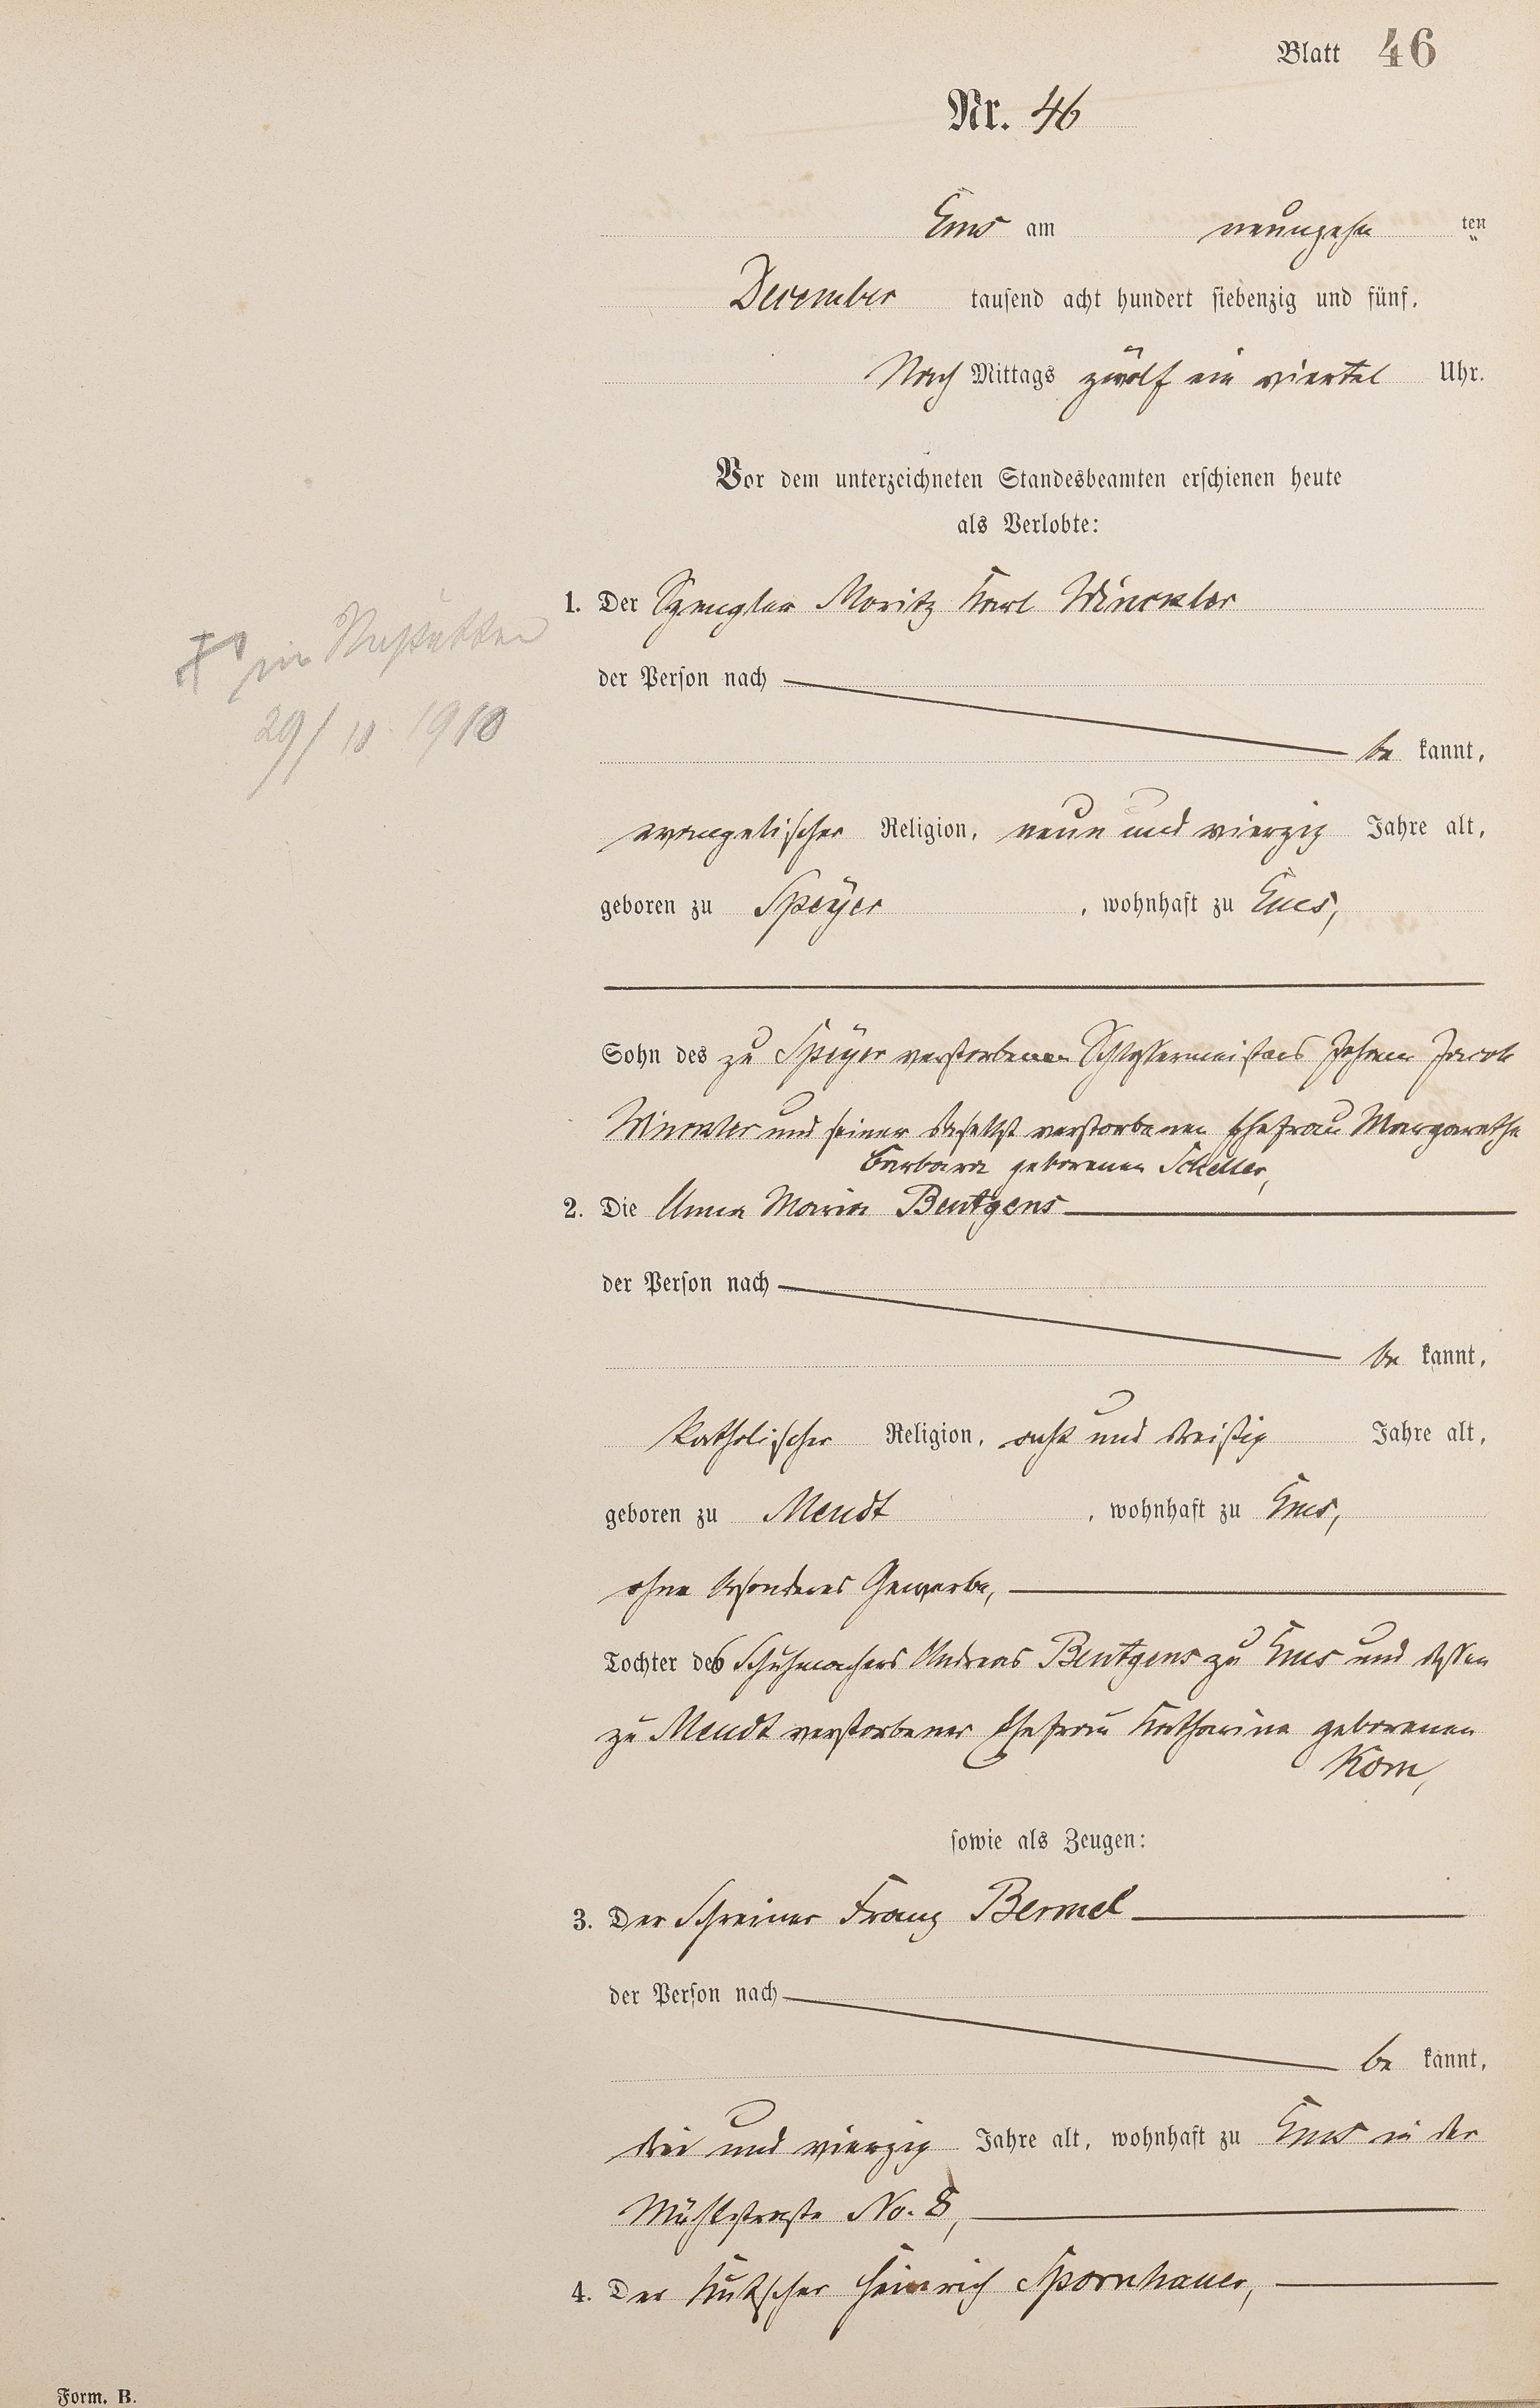 Blatt 46
Nr. 46
Ems am neunzehnten
December tausend acht hundert siebenzig und fünf,
Nach Mittags zwölf ein viertel Uhr.
Vor dem unterzeichneten Standesbeamten erschienen heute
als Verlobte:
1. Der Spengler Moritz Karl Winckler
in Nastätten
der Person nach
29/10 1910
be kannt,
evangelischer Religion, neun und vierzig Jahre alt,
geboren zu Speÿer, wohnhaft zu Ems,
Sohn des zu Speÿer verstorbenen Schlossermeisters Johann Jacob
Winckler und seiner daselbst verstorbenen Ehefrau Margarethe
Barbara geborenen Scheller,
2. Die Anna Maria Bentgens
der Person nach
be kannt,
katholischer Religion, acht und dreißig Jahre alt,
geboren zu Meudt, wohnhaft zu Ems,
ohne besonderes Gewerbe,
Tochter des Schuhmachers Andreas Bentgens zu Ems und dessen
zu Meudt verstorbener Ehefrau Katharina geborenen
Korn,
sowie als Zeugen:
3. Der Schreiner Franz Bermel
der Person nach
be kannt,
drei und vierzig Jahre alt, wohnhaft zu Ems in der
Mühlstraße No. 8,
4. Der Kutscher Heinrich Spornhauer,
Form. B.